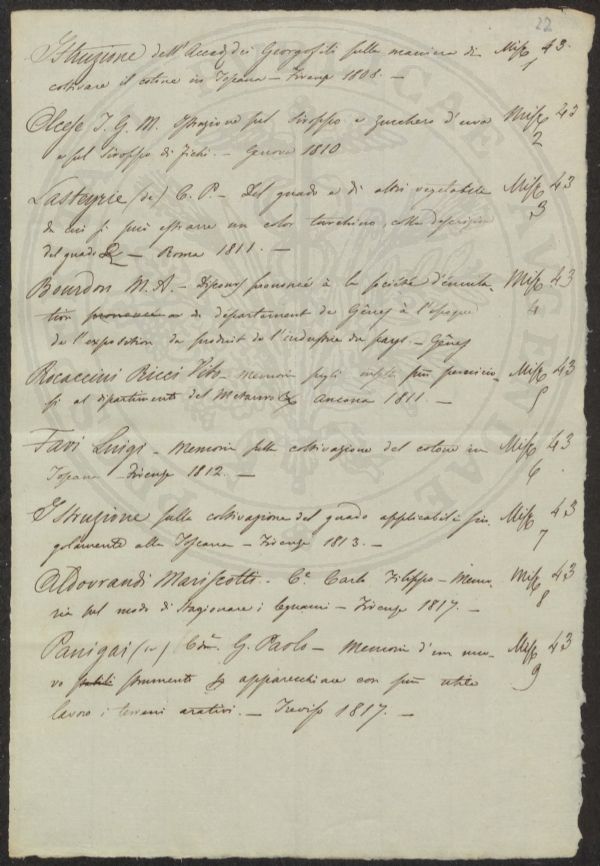 22
Istruzione dell'Accad. dei Georgofili sulla maniera di Misc. 43.
coltivare il cotone in Toscana — Firenze 1808. — 1
Olcese I. G. M. Istruzione sul Siroppo e Zucchero d'uva Misc. 43
e sul Siroppo di Fichi. — Genova 1810 2
Lasteyrie (de) C. P. — Del guado e di altri vegetabili Misc. 43
da cui si può estrarre un color turchino, colla descrizione 3
del guado & — Roma 1811. —
Bourdon M. A. — Discours prononcé à la Société d'émula Misc. 43
tion du département de Gênes à l'époque 4
de l'exposition du produit de l'industrie du pays — Gênes
Rocaccini Ricci — Memoria sugli insetti più pernicio- Misc. 43
si al dipartimento del Metauro & Ancona 1811. — 5
Favi Luigi — Memoria sulla coltivazione del cotone in Misc. 43
Toscana — Firenze 1812. — 6.
Istruzione sulla coltivazione del guado applicabile sin Misc. 43
golarmente alla Toscana — Firenze 1813. — 7
Aldovrandi Mariscotti — C.e Carlo Filippo — Memo Misc. 43
ria sul modo di stagionare i legnami — Firenze 1817. — 8
Panigai (de) G. Paolo — Memoria d'un nuo- Misc. 43
vo strumento per apparecchiare con più utile 9
lavoro i terreni arativi. — Treviso 1817. —